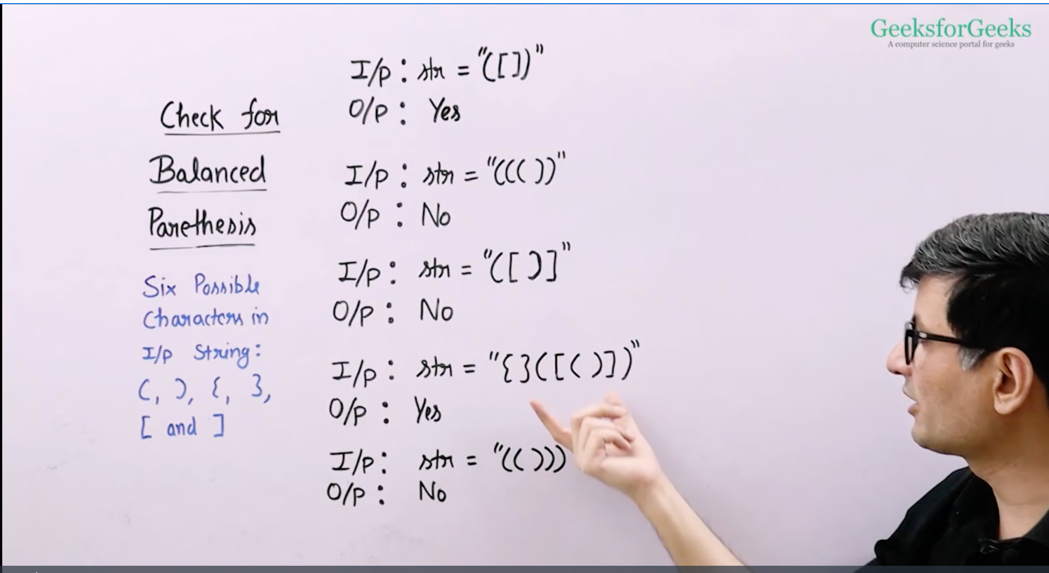 GeeksforGeeks
A computer science portal for geeks
Check for
Balanced
Parethesis
Six Possible
Characters in
I/p String:
(, ), {, },
[ and ]
I/p : str = "([])"
O/p : Yes
I/p : str = "((( ))"
O/p : No
I/p : str = "([ )]"
O/p : No
I/p : str = "{ }([( )])"
O/p : Yes
I/p : str = "(( )))
O/p : No